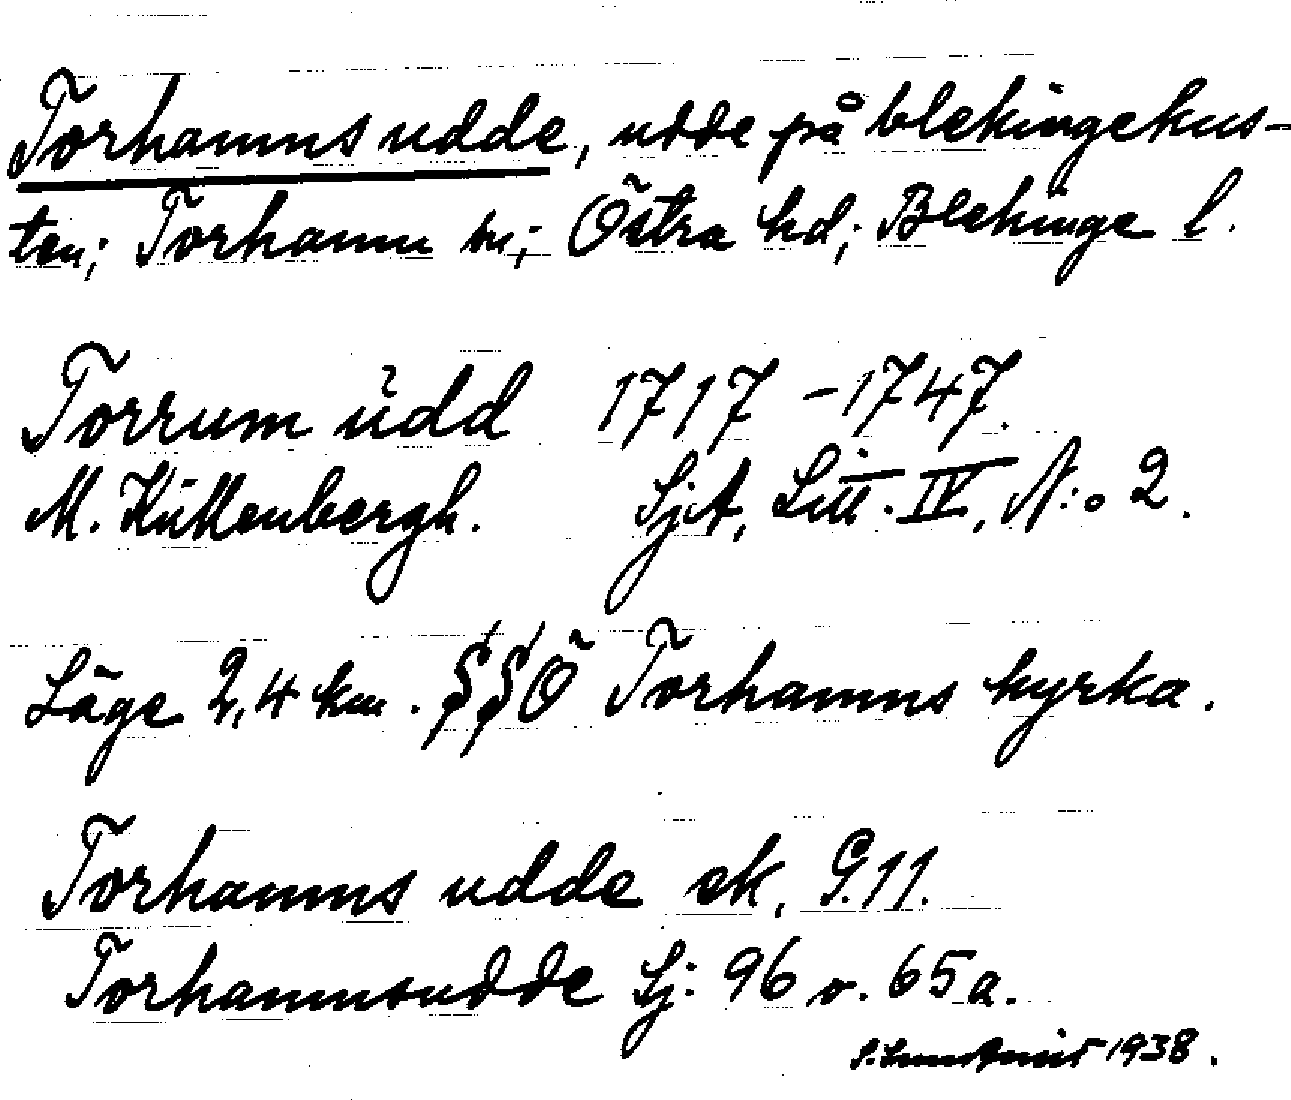 Torhamns udde, udde på blekingekus-
ten; Torhamn sn; Östra hd; Blekinge l.
Torrum ŭdd 1717 - 1747.
M. Küllenbergh. SjA, Litt. IV, N:o 2.
Läge 2,4 km. SSÖ Torhamns kyrka.
Torhamns udde ek. G.11.
Torhamnsudde Sj: 96 o. 65a.
1938.